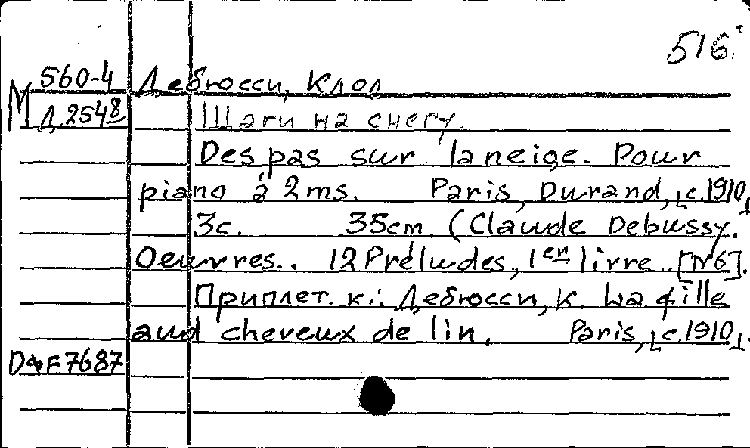 516.
М 560-4 Дебюсси, Клод
Д 2548 Шаги на снегу.
Des pas sur la neige. Pour
piano à 2 ms. Paris, Durand, [c.1910]
3с. 35cm. (Claude Debussy.
Oeuvres.. 12 Préludes, 1er livre.. [N6].
Приплет. к.: Дебюсси, К. La fille
aud cheveux de lin. Paris, [c.1910].
D&F7687